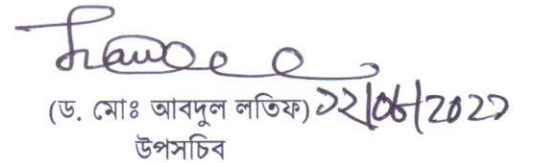 (ড. মোঃ আবদুল লতিফ) ২২/০৬/২০২১
উপসচিব